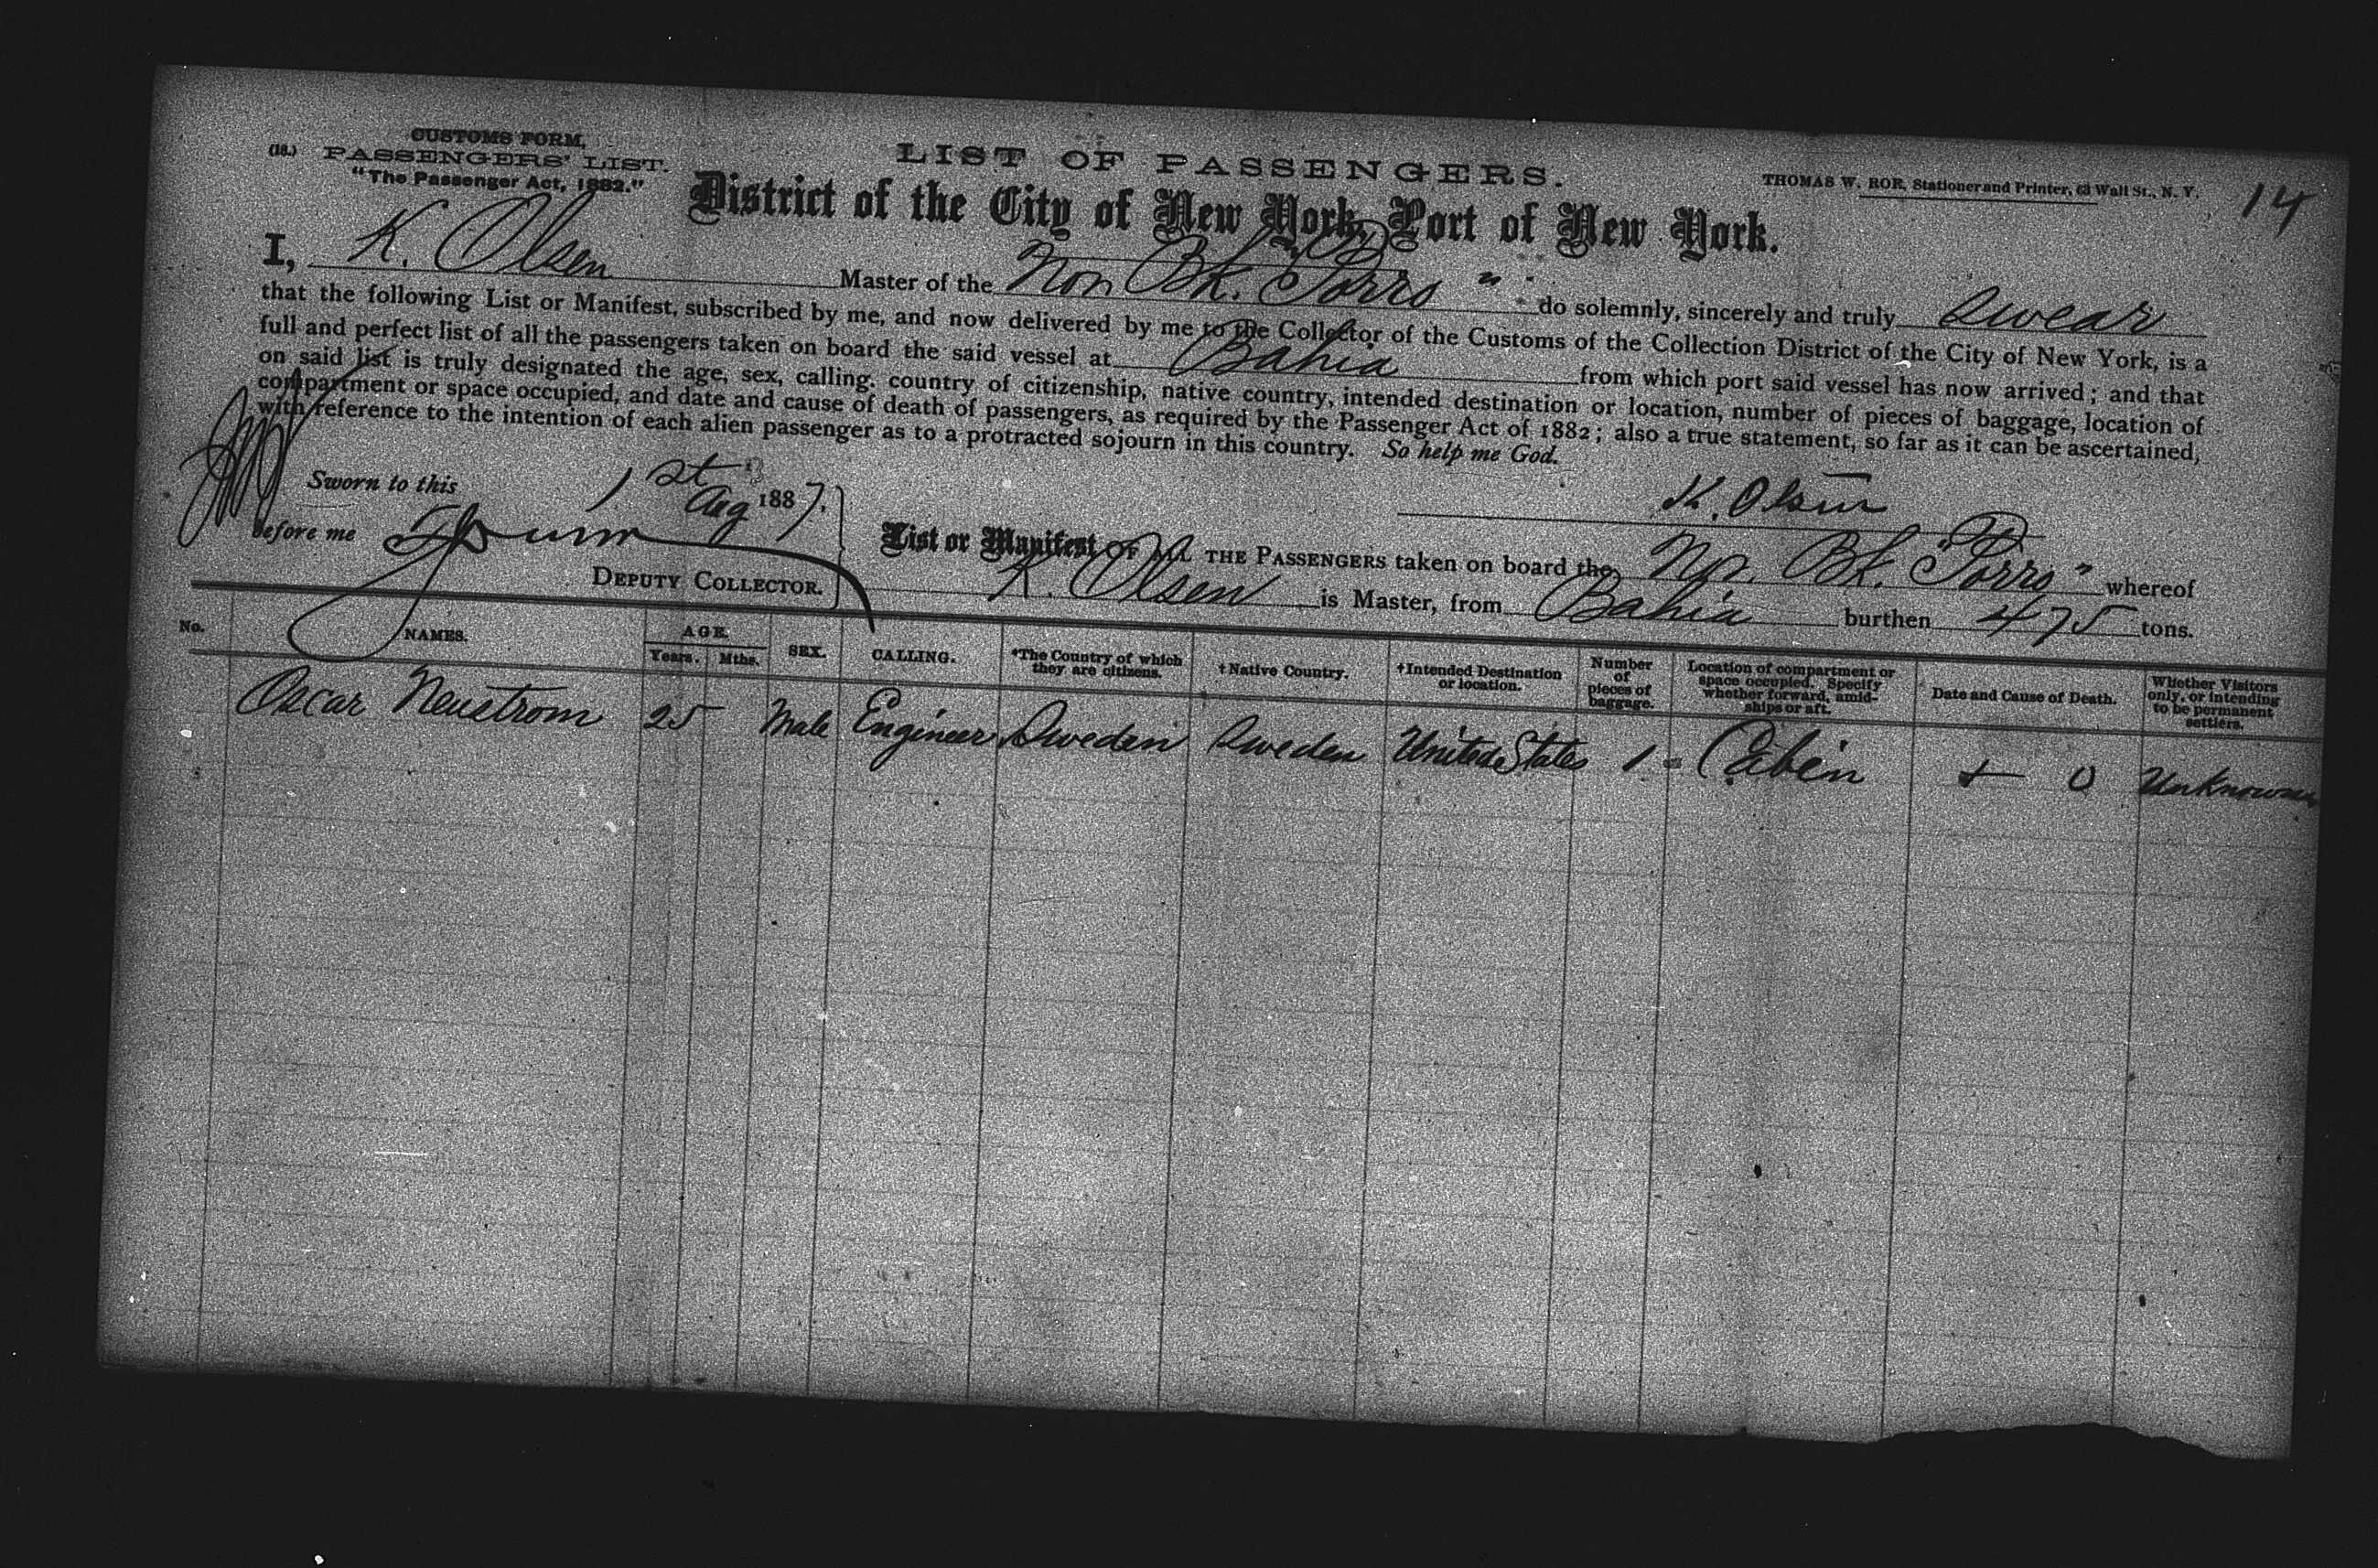 CUSTOMS FORM,
(18.) PASSENGERS' LIST.
"The Passenger Act, 1882."
LIST OF PASSENGERS.
THOMAS W. ROE, Stationer and Printer, 63 Wall St., N. Y.
14
District of the City of New York, Port of New York.
I, K. Olsen Master of the Nor Bk. "Porro" do solemnly, sincerely and truly swear
that the following List or Manifest, subscribed by me, and now delivered by me to the Collector of the Customs of the Collection District of the City of New York, is a
full and perfect list of all the passengers taken on board the said vessel at Bahia from which port said vessel has now arrived; and that
on said list is truly designated the age, sex, calling. country of citizenship, native country, intended destination or location, number of pieces of baggage, location of
compartment or space occupied, and date and cause of death of passengers, as required by the Passenger Act of 1882; also a true statement, so far as it can be ascertained,
with reference to the intention of each alien passenger as to a protracted sojourn in this country. So help me God.
Sworn to this 1st Aug 1887.
K. Olsen
before me
DEPUTY COLLECTOR.
List or Manifest OF ALL THE PASSENGERS taken on board the Nor. Bk. "Porro" whereof
K. Olsen is Master, from Bahia burthen 475 tons.
No. NAMES. AGE. Years. Mths. SEX. CALLING. *The Country of which they are citizens. †Native Country. †Intended Destination or location. Number of pieces of baggage. Location of compartment or space occupied. Specify whether forward, amidships or aft. Date and Cause of Death. Whether Visitors only, or intending to be permanent settlers.
Oscar Neustrom 25 Male Engineer Sweden Sweden United States 1 Cabin 0 Unknown